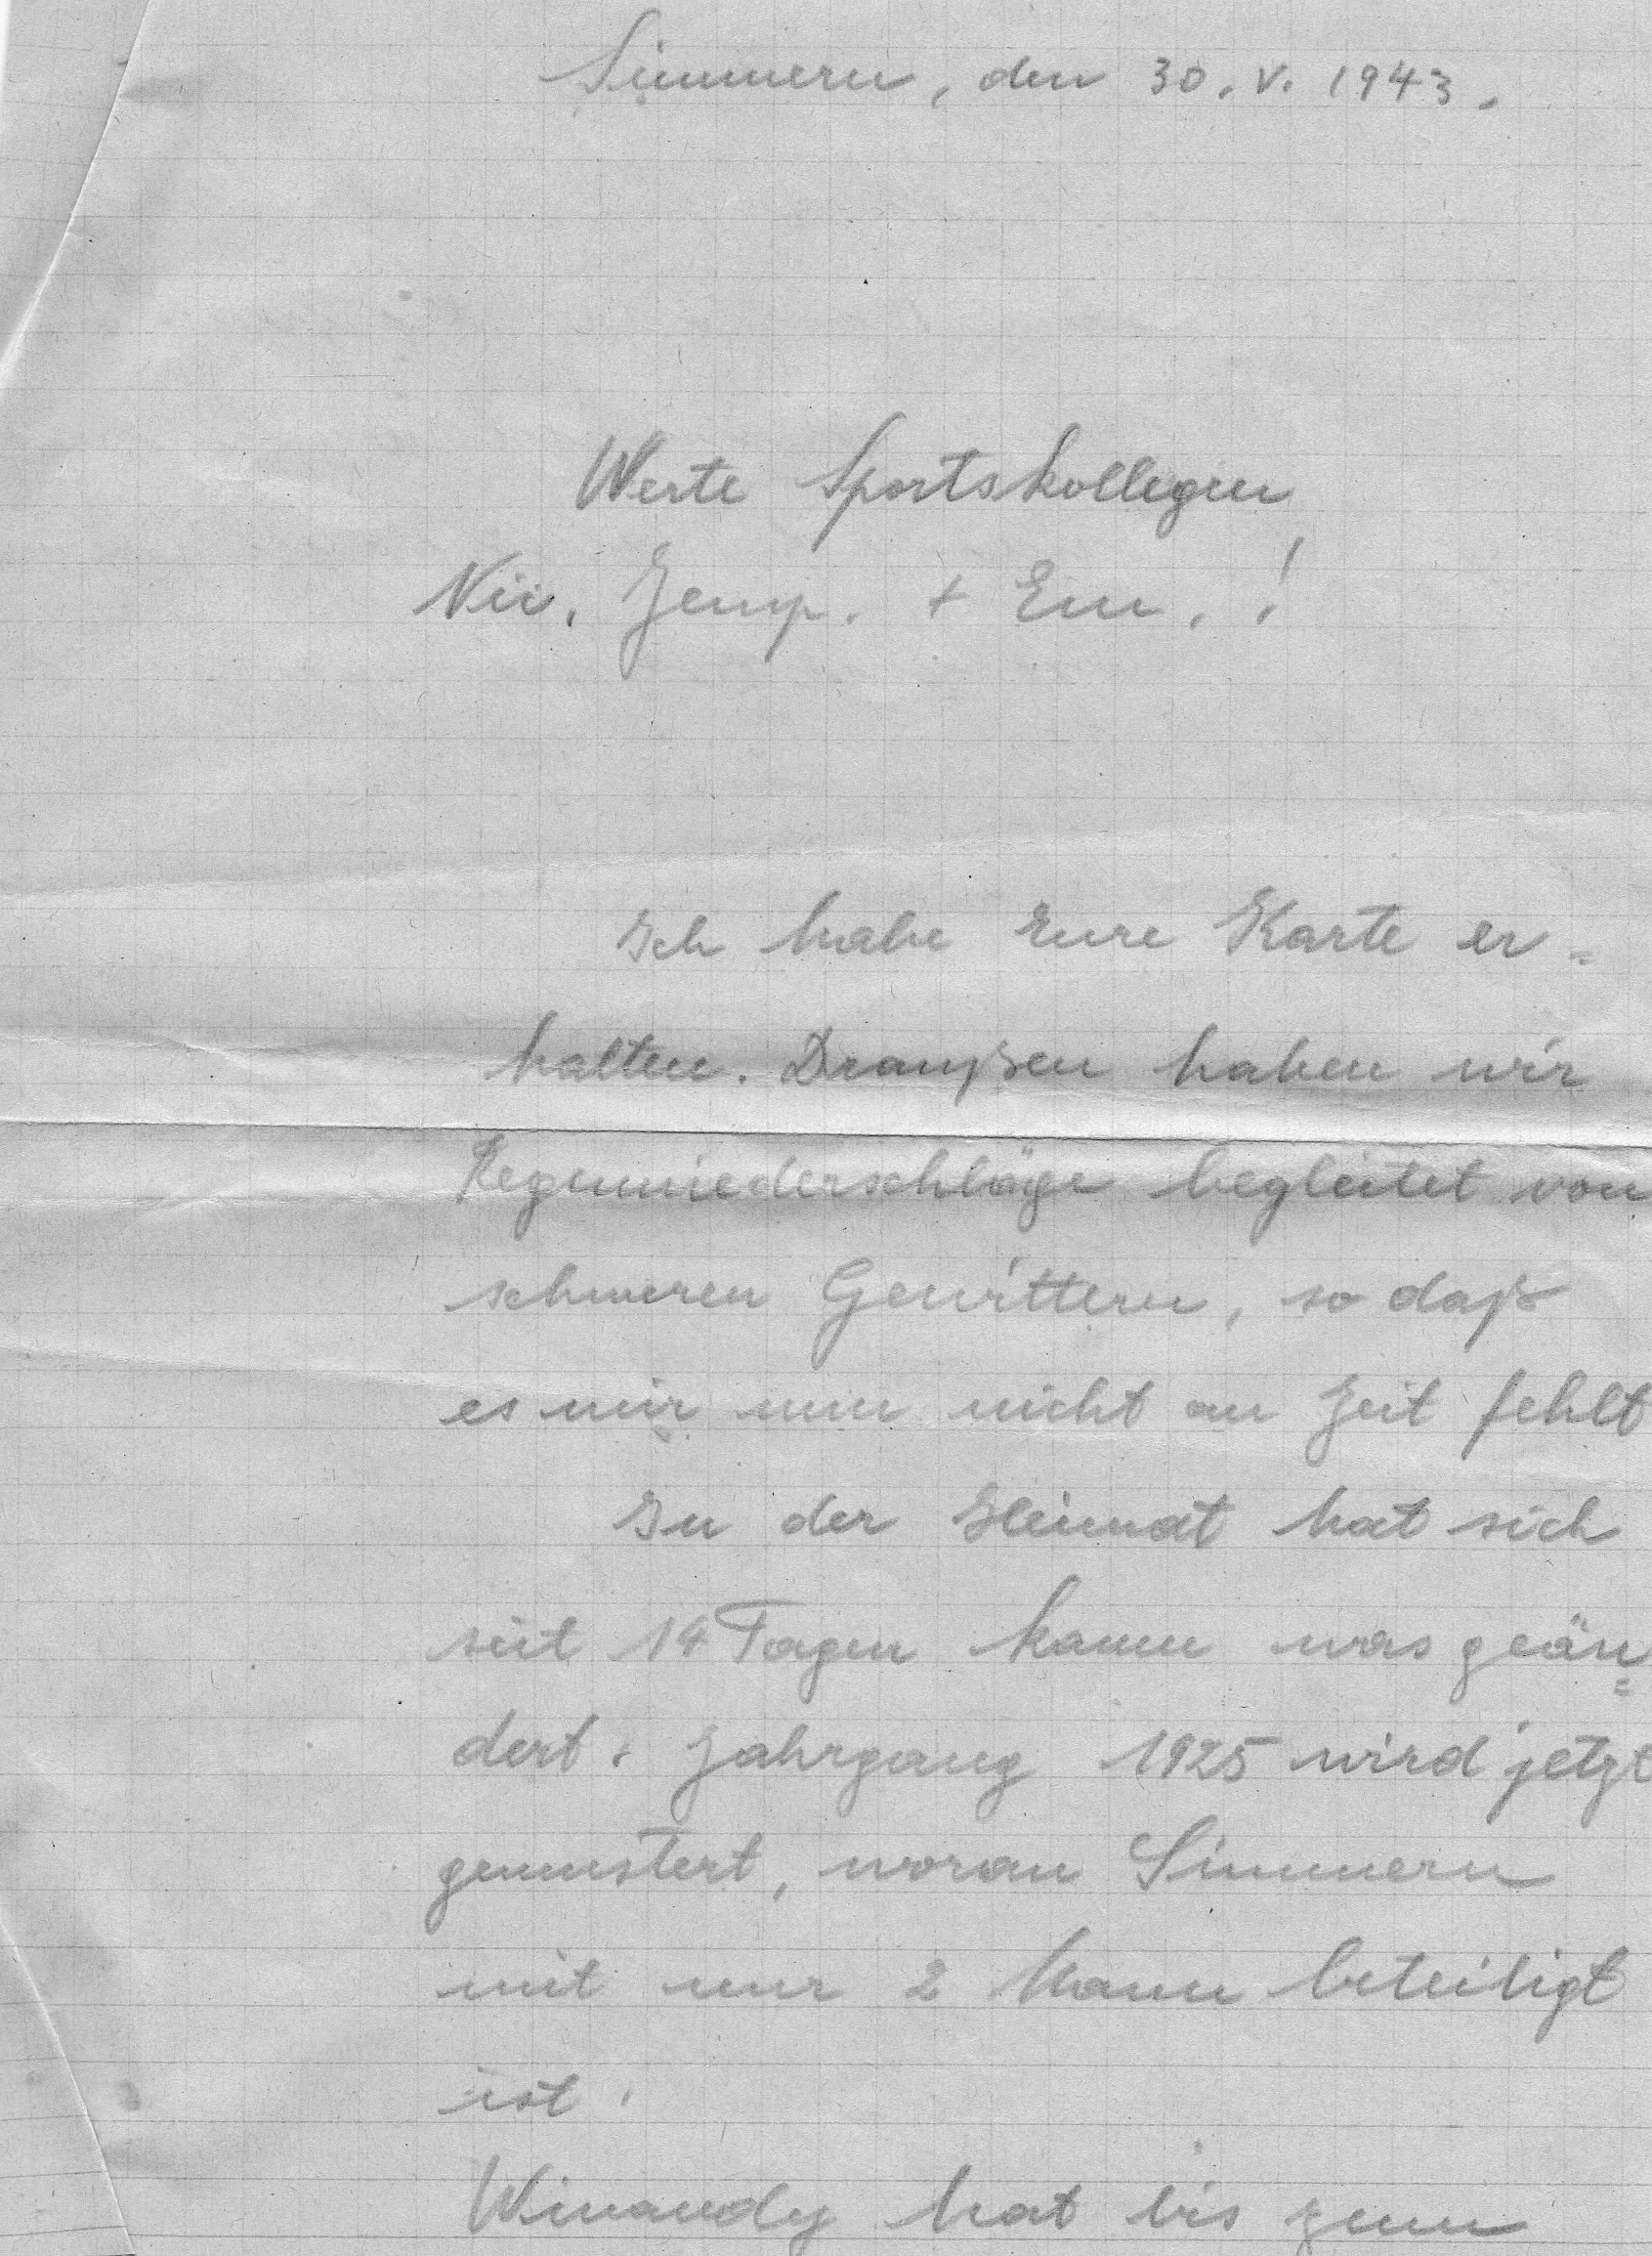 Simmern, den 30. V. 1943.
Werte Sportskollegen
Nic. Jemp. + Em. !
Ich habe Eure Karte er=
halten. Draußen haben wir
Regenniederschläge begleitet von
schweren Gewittern, so daß
es mir nun nicht an Zeit fehlt
In der Heimat hat sich
seit 14 Tagen kaum was geän=
dert. Jahrgang 1925 wird jetzt
gemustert, woran Simmern
mit nur 2 Mann beteiligt
ist.
Winandy hat bis zum